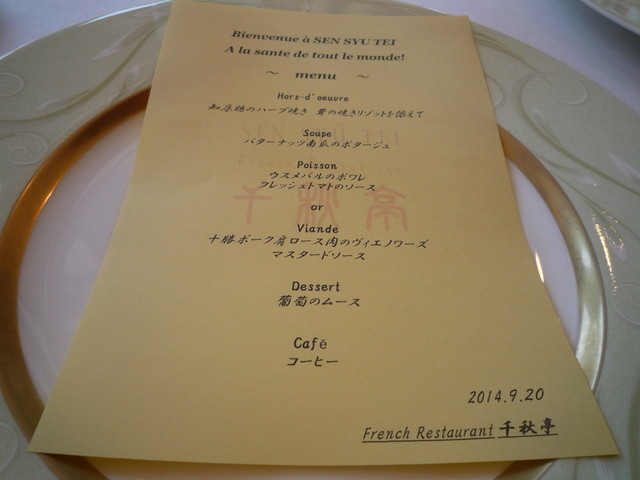 Bienvenue à SEN SYU TEI
A la sante de tout le monde!
～ menu ～
Hors-d'oeuvre
知床鶏のハーブ焼き 茸の焼きリゾットを添えて
SEN SYU TEI
Soupe
バターナッツ南瓜のポタージュ
Poisson
ウスメバルのポワレ
フレッシュトマトのソース
千秋亭
or
Viande
十勝ポーク肩ロース肉のヴィエノワーズ
マスタードソース
Dessert
葡萄のムース
Café
コーヒー
2014.9.20
French Restaurant 千秋亭